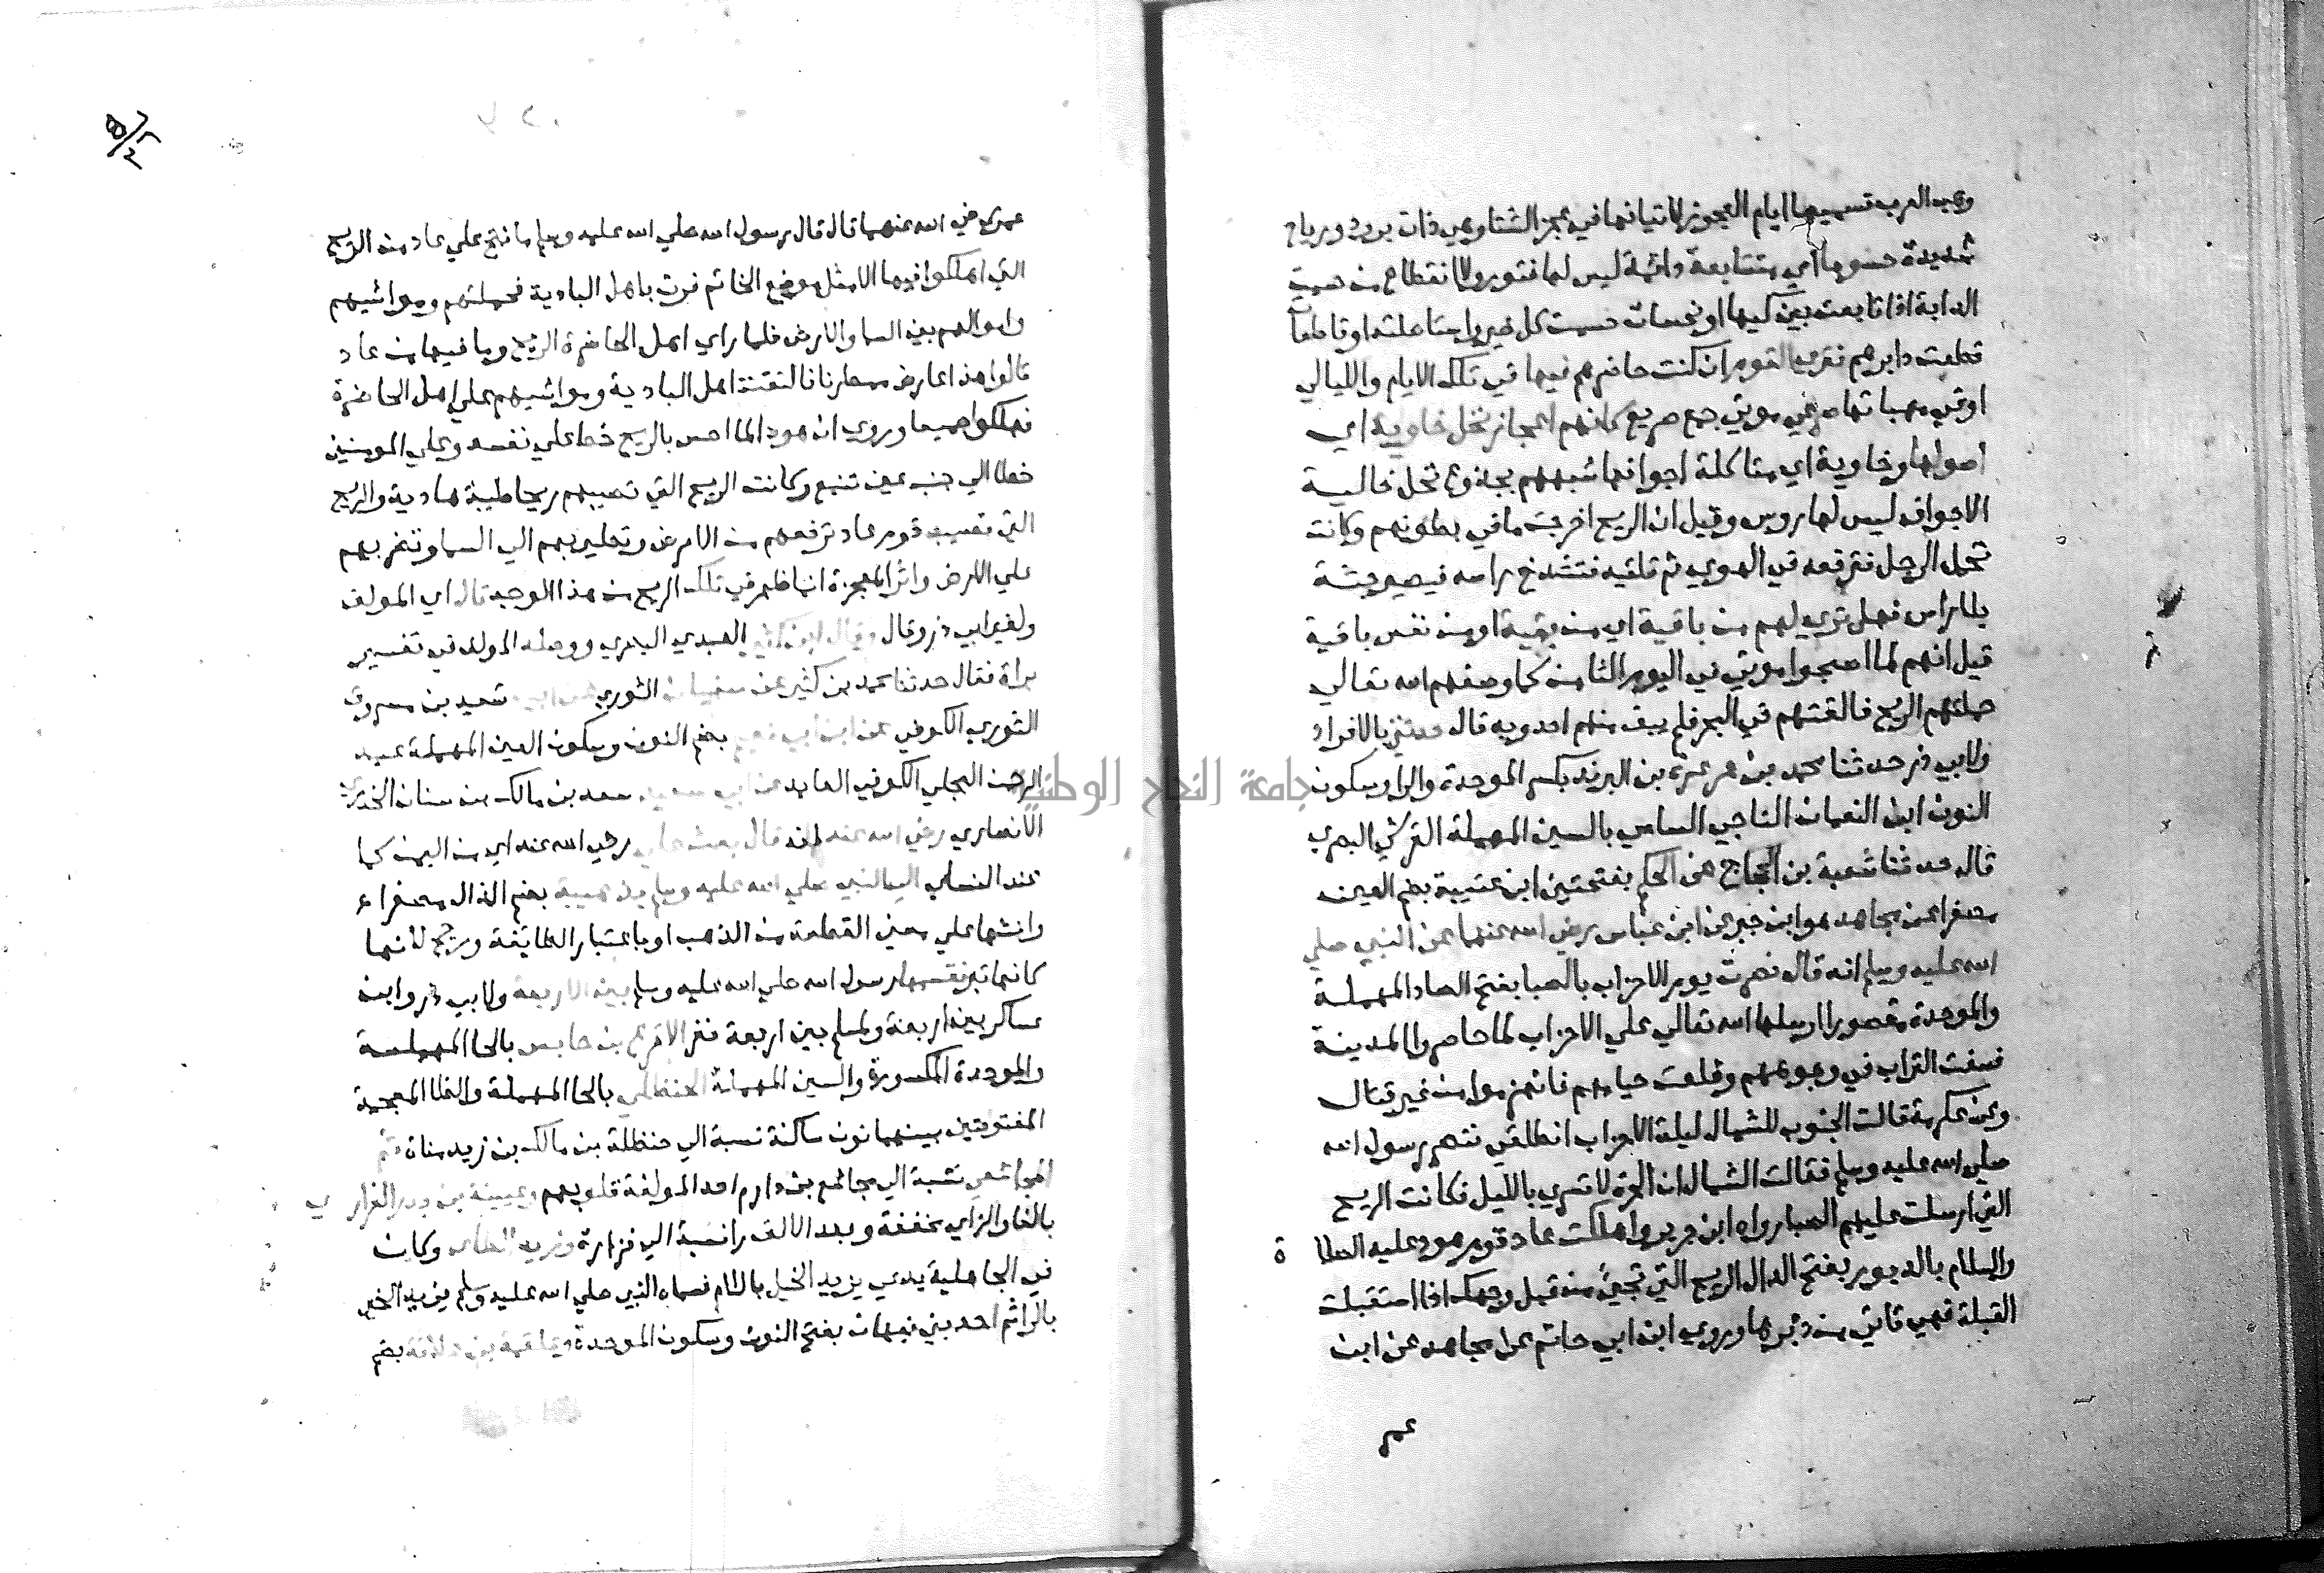 وعب العرب تسميها ايام العجوز لاتيانها في عجز الشتا وهي ذات برد ورياح
شديدة حسوما اي متتابعة دائمة ليس لها فتور ولا انقطاع من حسمت
الدابة اذا تابعت بين كيها او نحسات حسمت كل خير واستاصلته او قاطعات
قطعت دابرهم فترى القوم ان كنت حاضرهم فيها في تلك الايام والليالي
او في مهباتها صرعي موتي جمع صريع كانهم اعجاز نخل خاوية اي
اصولها وخاوية اي متاكلة اجوافها شبههم بجذوع نخل خالية
الاجواف ليس لها روس وقيل ان الريح اخرجت ما في بطونهم وكانت
تحمل الرجل فترفعه في الهوي ثم تلقيه فتشدخ راسه فيصير جثة
بلا راس فهل تري لهم من باقية اي من بقية او من نفس باقية
قيل انهم لما اصبحوا موتي في اليوم الثامن كما وصفهم الله تعالي
حملتهم الريح فالقتهم في البحر فلم يبق منهم احد وبه قال حدثني بالافراد
ولابي ذر حدثنا محمد بن عرعرة بن البرند بكسر الموحدة والرا وسكون
النون ابن النعمان الناجي السامي بالسين المهملة القرشي البصري
قال حدثنا شعبة بن الحجاج عن الحكم بفتحتين ابن عتيبة بضم العين
مصغرا عن مجاهد هو ابن جبر عن ابن عباس رضي الله عنهما عن النبي صلي
الله عليه وسلم انه قال نصرت يوم الاحزاب بالصبا بفتح الصاد المهملة
والموحدة مقصورا ارسلها الله تعالي علي الاحزاب لما حاصروا المدينة
فسفت التراب في وجوههم وقلعت خيامهم فانهزموا من غير قتال
وعن عكرمة قالت الجنوب للشمال ليلة الاحزاب انطلقي ننصر رسول الله
صلي الله عليه وسلم فقالت الشمال ان الحرة لا تسري بالليل فكانت الريح
التي ارسلت عليهم الصبا رواه ابن جرير واهلكت عاد قوم هود عليه الصلاة
والسلام بالدبور بفتح الدال الريح التي تجيئ من قبل وجهك اذا استقبلت
القبلة فهي تاتي من دبرها وروي ابن ابي حاتم عن مجاهد عن ابن
عمر
عمر رضي الله عنهما قال قال رسول الله صلي الله عليه وسلم ما فتح علي عاد من الريح
التي اهلكوا فيها الا مثل موضع الخاتم فمرت باهل البادية فحملتهم ومواشيهم
واموالهم بين السما والارض فلما راي اهل الحاضرة الريح وما فيها من عاد
قالوا هذا عارض ممطرنا فالقت اهل البادية ومواشيهم علي اهل الحاضرة
فهلكوا جميعا وروي ان هود لما احس بالريح خط علي نفسه وعلي المومنين
خطا الي جنب عين تنبع وكانت الريح التي تصيبهم ريحا طيبة هادية والريح
التي تصيب قوم عاد ترفعهم من الارض وتطير بهم الي السما وتضربهم
علي الارض واثر المعجزة انما ظهر في تلك الريح من هذا الوجه قال اي المولف
ولغير ابي ذر وقال وقال ابن كثير العبدي البصري ووصله المولف في تفسير
براة فقال حدثنا محمد بن كثير عن سفيان الثوري عن ابيه سعيد بن مسروق
الثوري الكوفي عن ابن ابي نعم بضم النون وسكون العين المهملة عبد
الرحمن البجلي الكوفي العابد عن ابي سعيد سعد بن مالك بن سنان الخدري
الانصاري رضي الله عنه انه قال بعث علي رضي الله عنه اي من اليمن كما
عند النسائي الي النبي صلي الله عليه وسلم بذهيبة بضم الذال مصغرا
وانثها علي معني القطعة من الذهب او باعتبار الطايفة ورجح لانها
كانت تبرا فقسمها رسول الله صلي الله عليه وسلم بين الاربعة ولابي ذر وابن
عساكر بين اربعة ولمسلم بين اربعة نفر الاقرع بن حابس بالحا المهملة
والموحدة المكسورة والسين المهملة الحنظلي بالحا المهملة والظا المعجمة
المفتوحتين بينهما نون ساكنة نسبة الي حنظلة بن مالك بن زيد مناة ثم
المجاشعي نسبة الي مجاشع بن دارم احد المولفة قلوبهم وعيينة بن بدر الفزاري
بالفا والزاي مخففة وبعد الالف را نسبة الي فزارة وزيد الطاي وكان
في الجاهلية يدعي بزيد الخيل باللام فسماه النبي صلي الله عليه وسلم زيد الخير
بالرا ثم احد بني نبهان بفتح النون وسكون الموحدة وعلقمة بن علاثة بضم
جامعة النجاح الوطنية